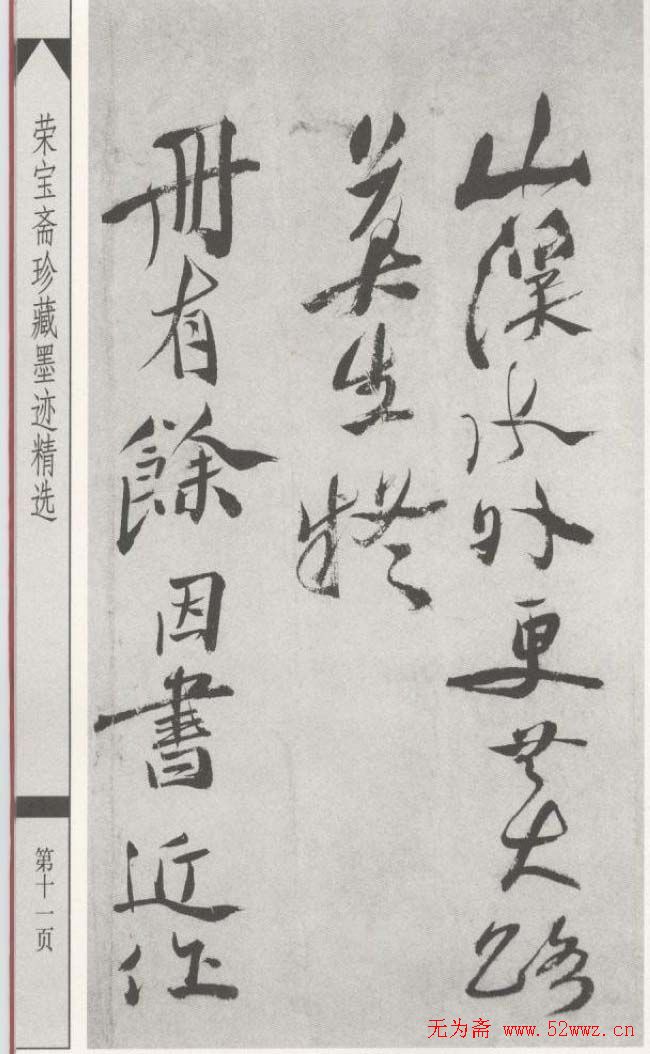 山深水外更無大路
莫生
册有餘因書近作
荣宝斋珍藏墨迹精选
第十一页
无为斋 www.52wwz.cn